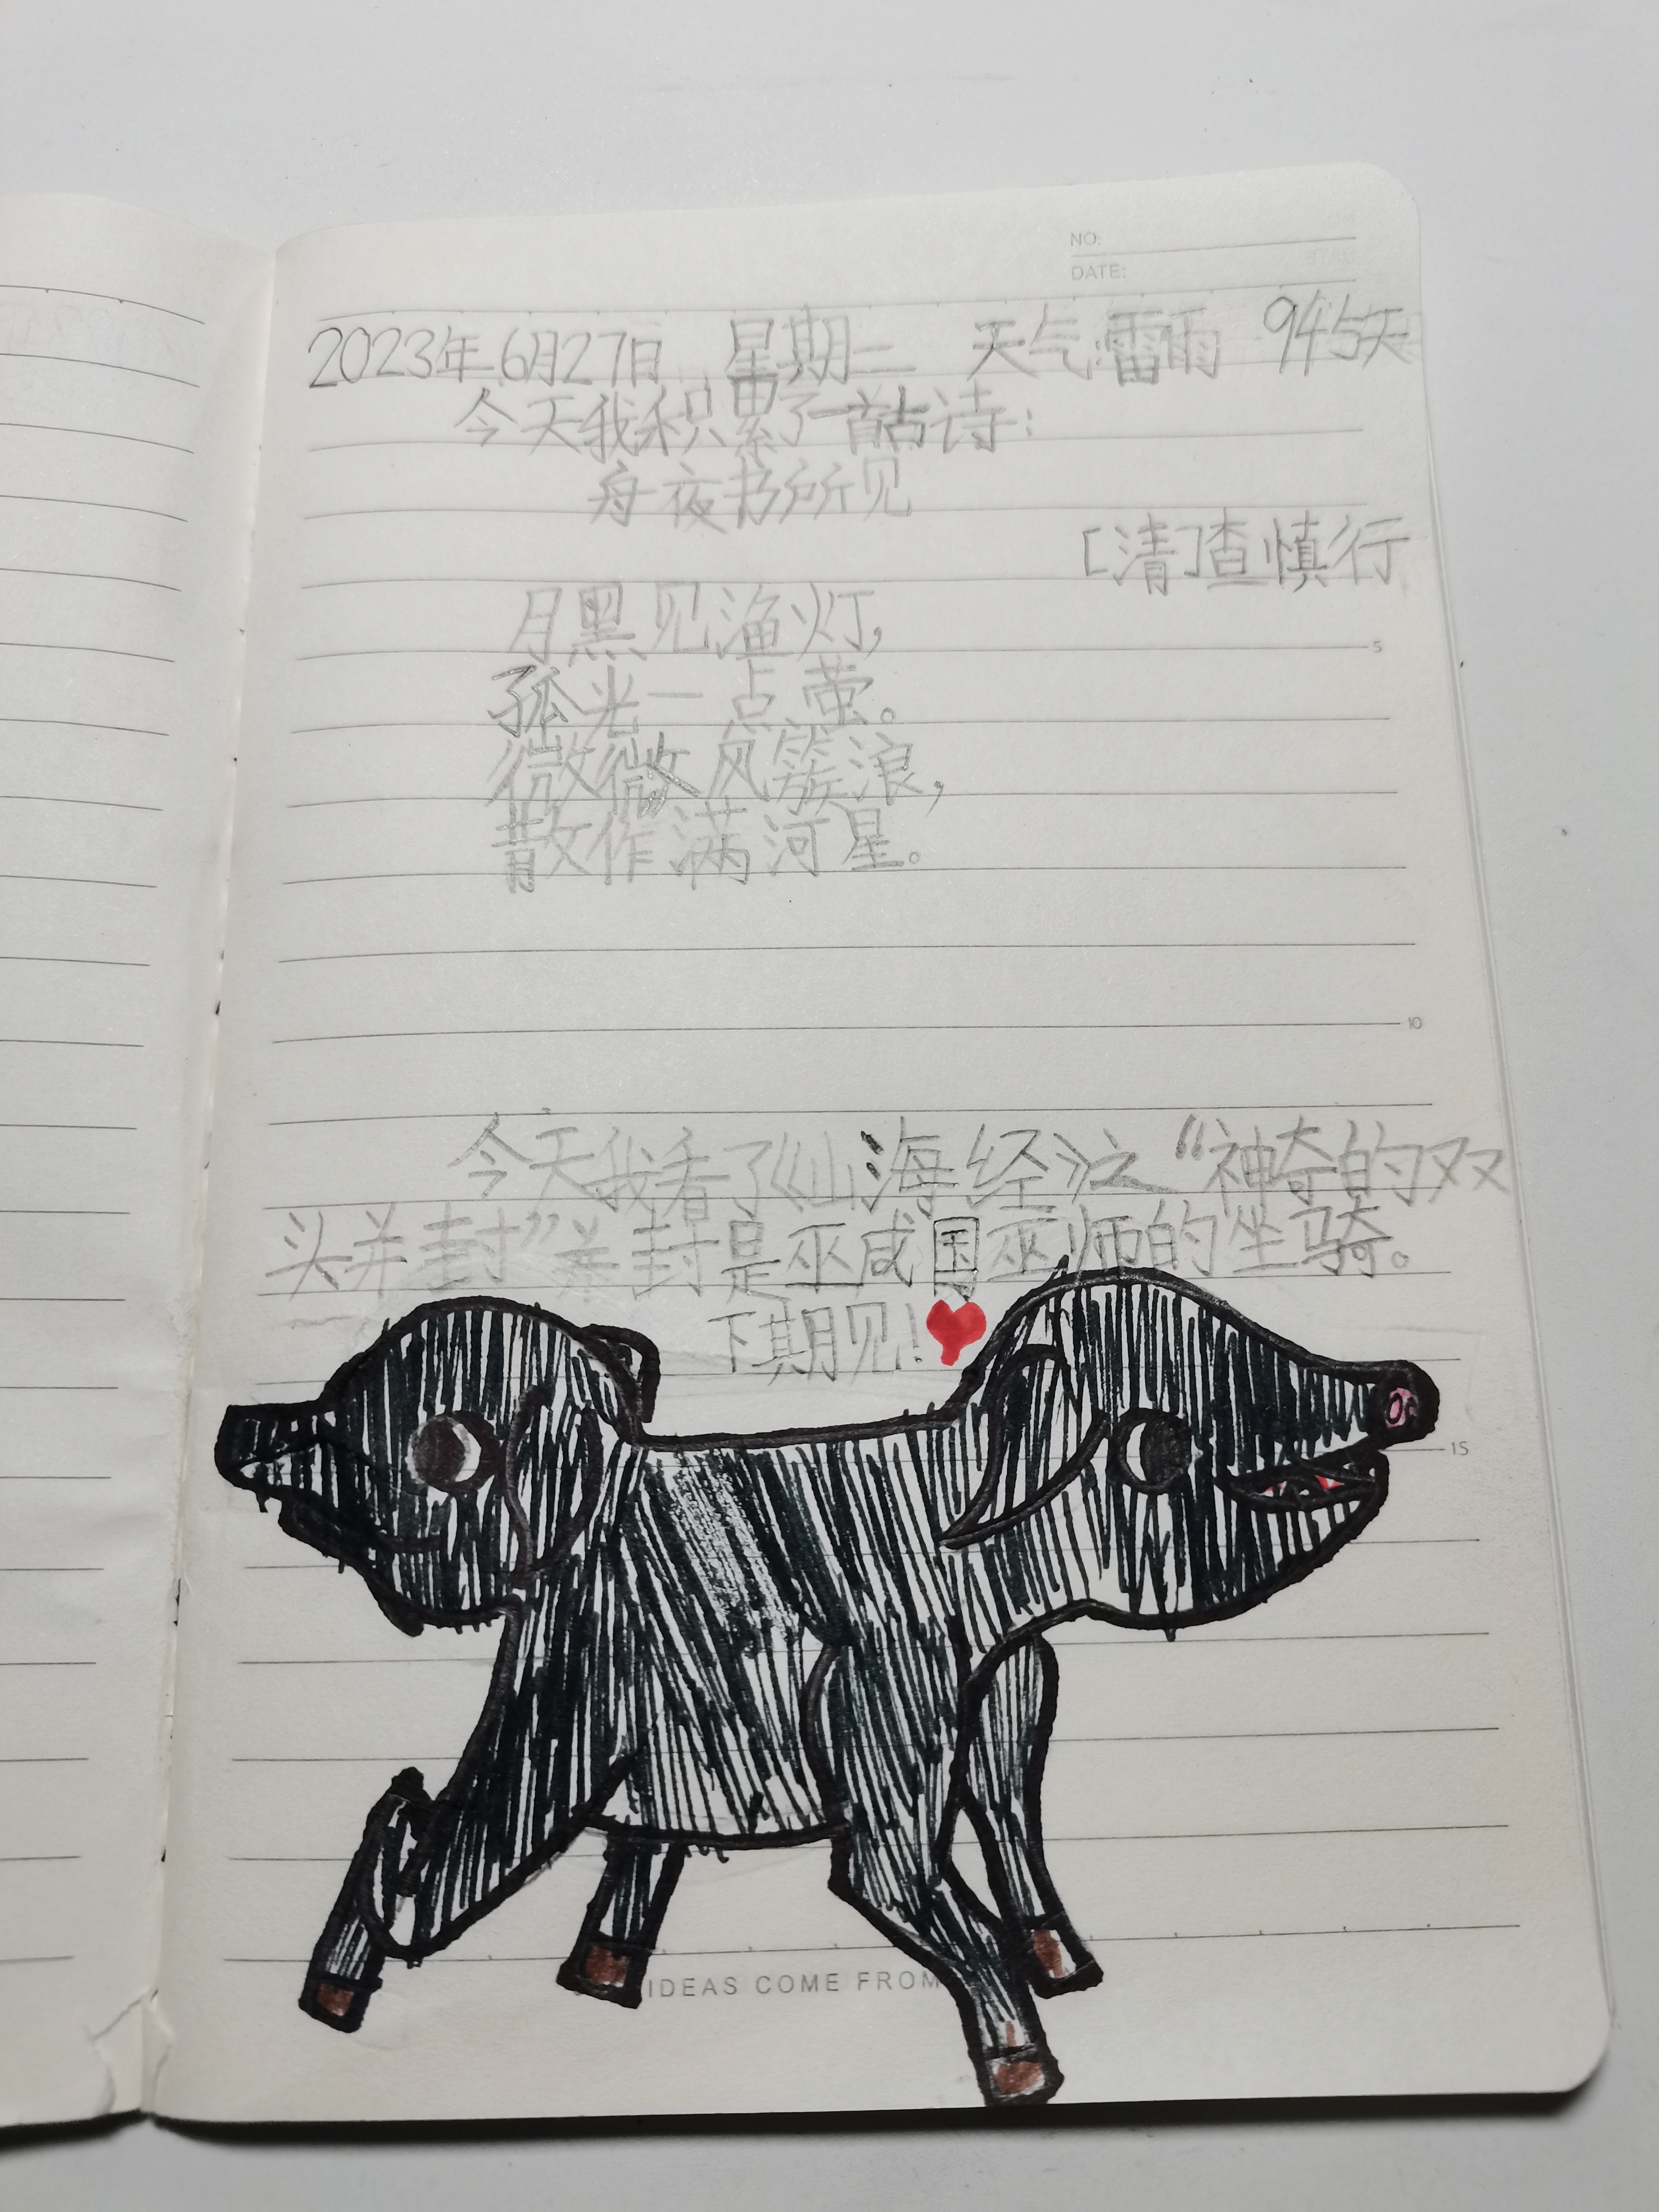 NO:
DATE:
2023年6月27日 星期二 天气:雷雨 945天
今天我积累了一首古诗:
舟夜书所见
[清]查慎行
月黑见渔灯,
孤光一点萤。
微微风簇浪,
散作满河星。
5
10
今天我看了《山海经》之“神奇的双
头并封”并封是巫咸国巫师的坐骑。
下期见!
15
IDEAS COME FROM